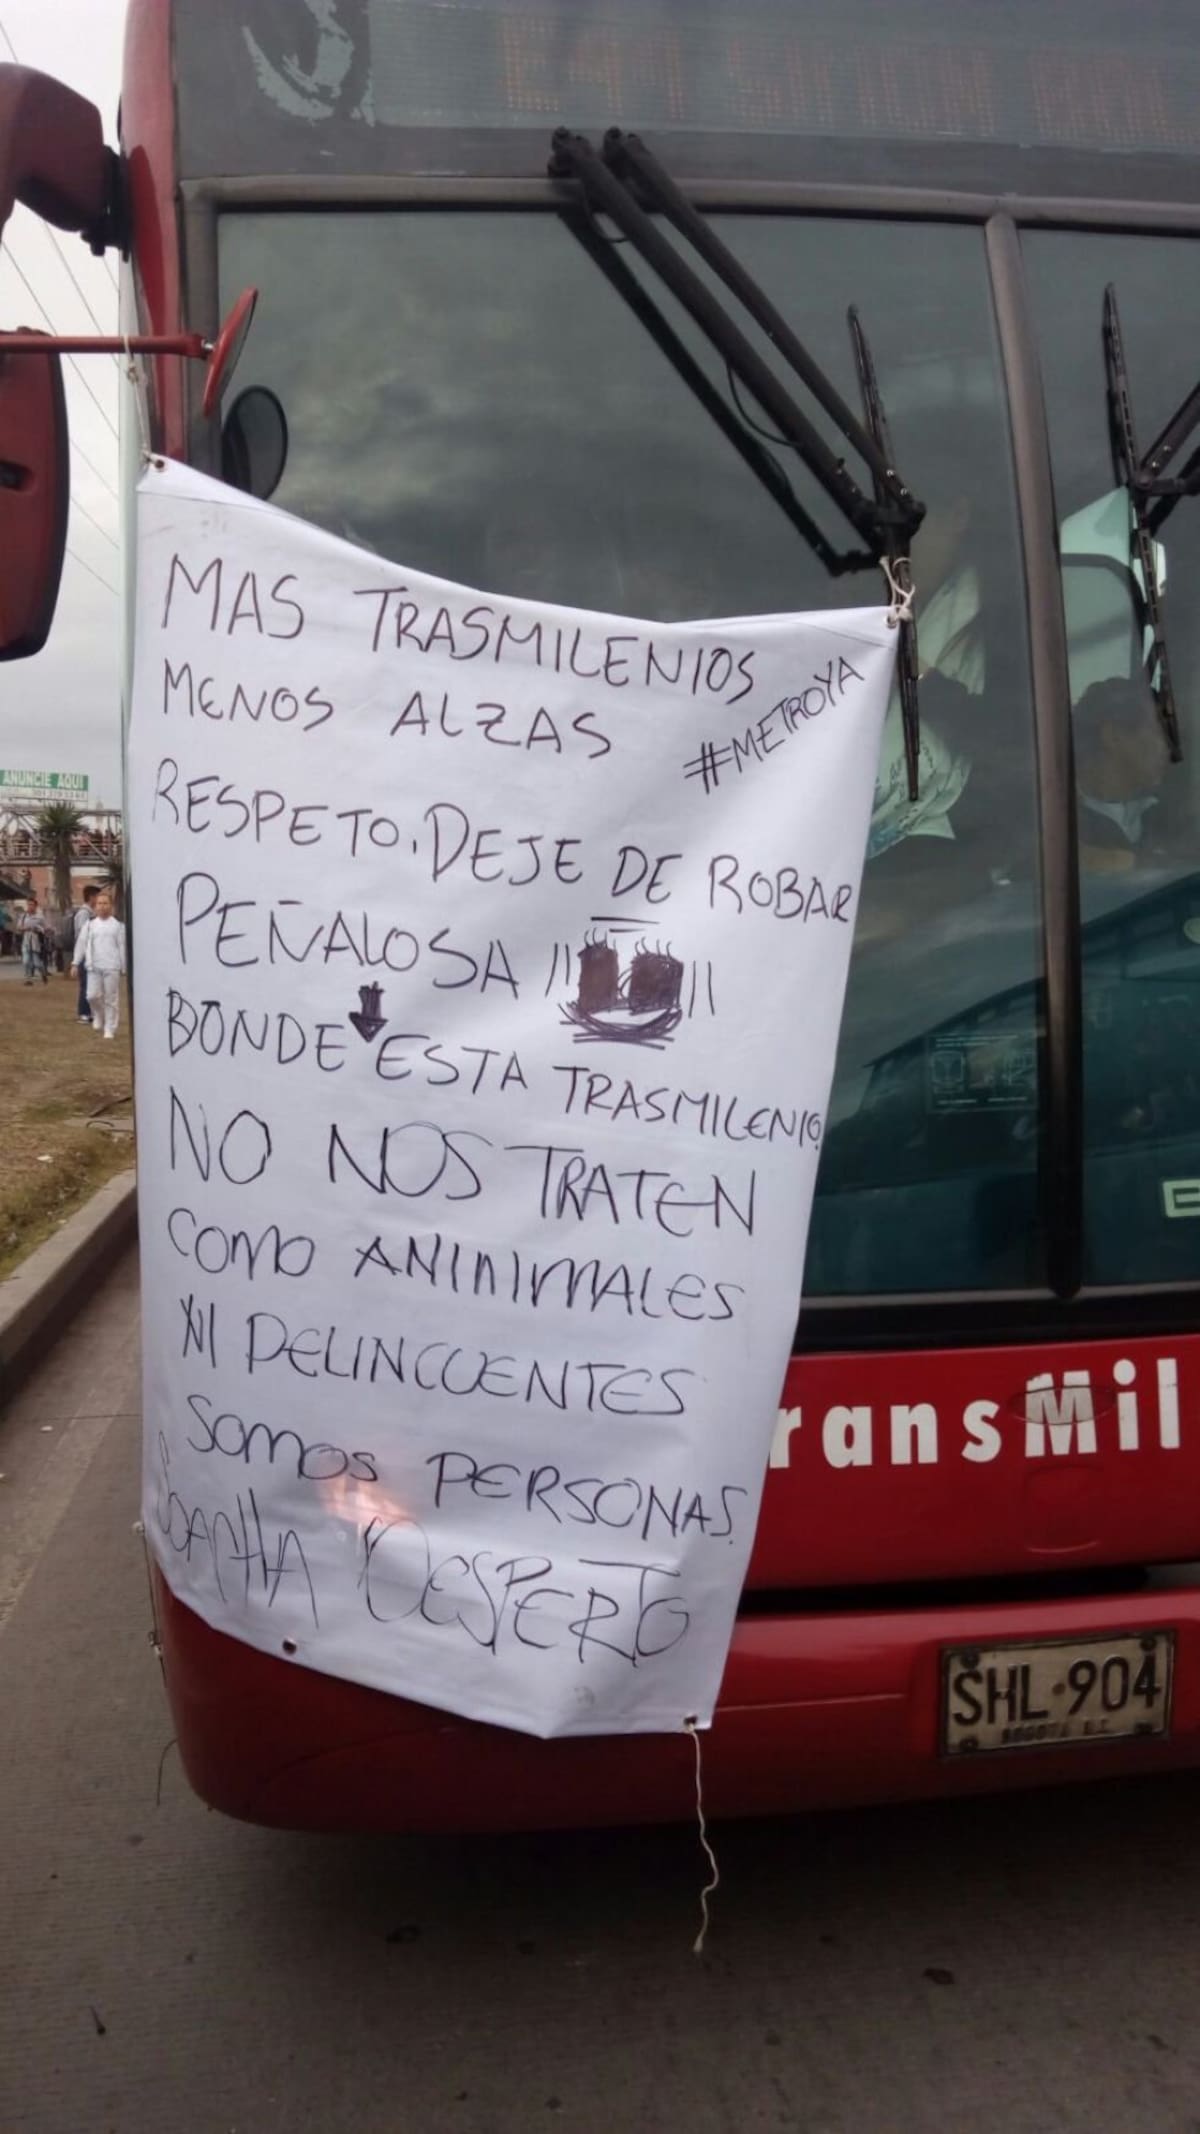 MAS TRASMILENIOS
MENOS ALZAS
#METROYA
RESPETO. DEJE DE ROBAR
PEÑALOSA
BONDE ESTA TRASMILENIO
NO NOS TRATEN
COMO ANINIMALES
NI DELINCUENTES
SOMOS PERSONAS
SOACHA DESPERTO
ransMil
SHL·904
BOGOTA D.C.
ANUNCIE AQUI